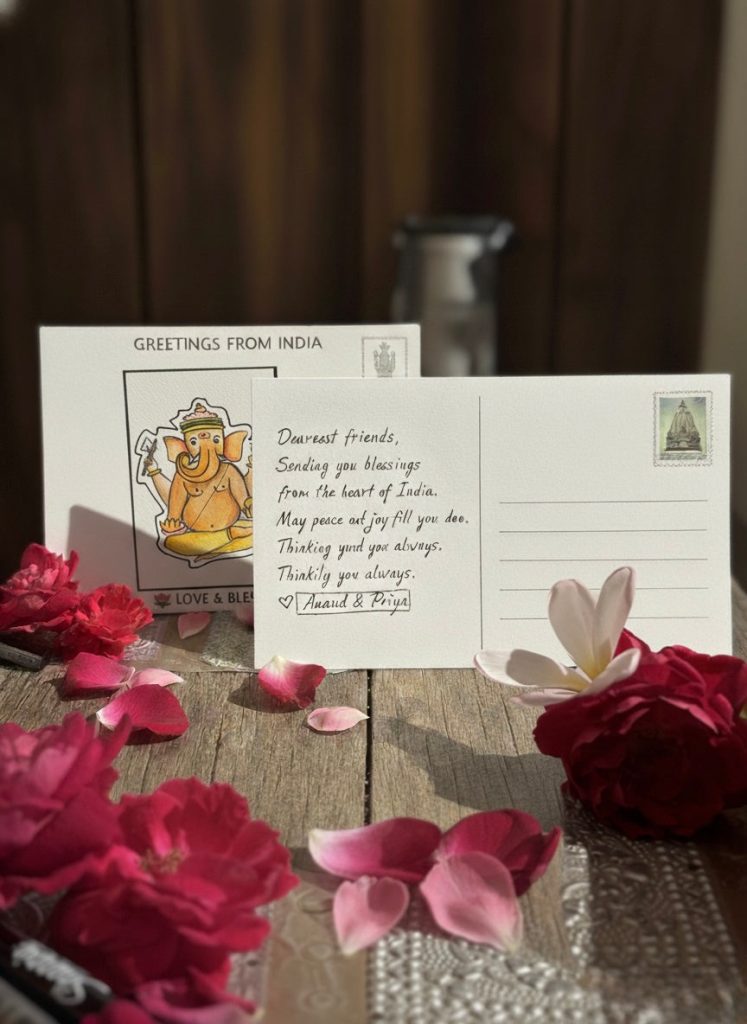 GREETINGS FROM INDIA
LOVE & BLES
Dearest friends,
Sending you blessings
from the heart of India.
May peace ont joy fill you deo.
Thinking yund you always.
Thinkily you always.
Anaud & Priya